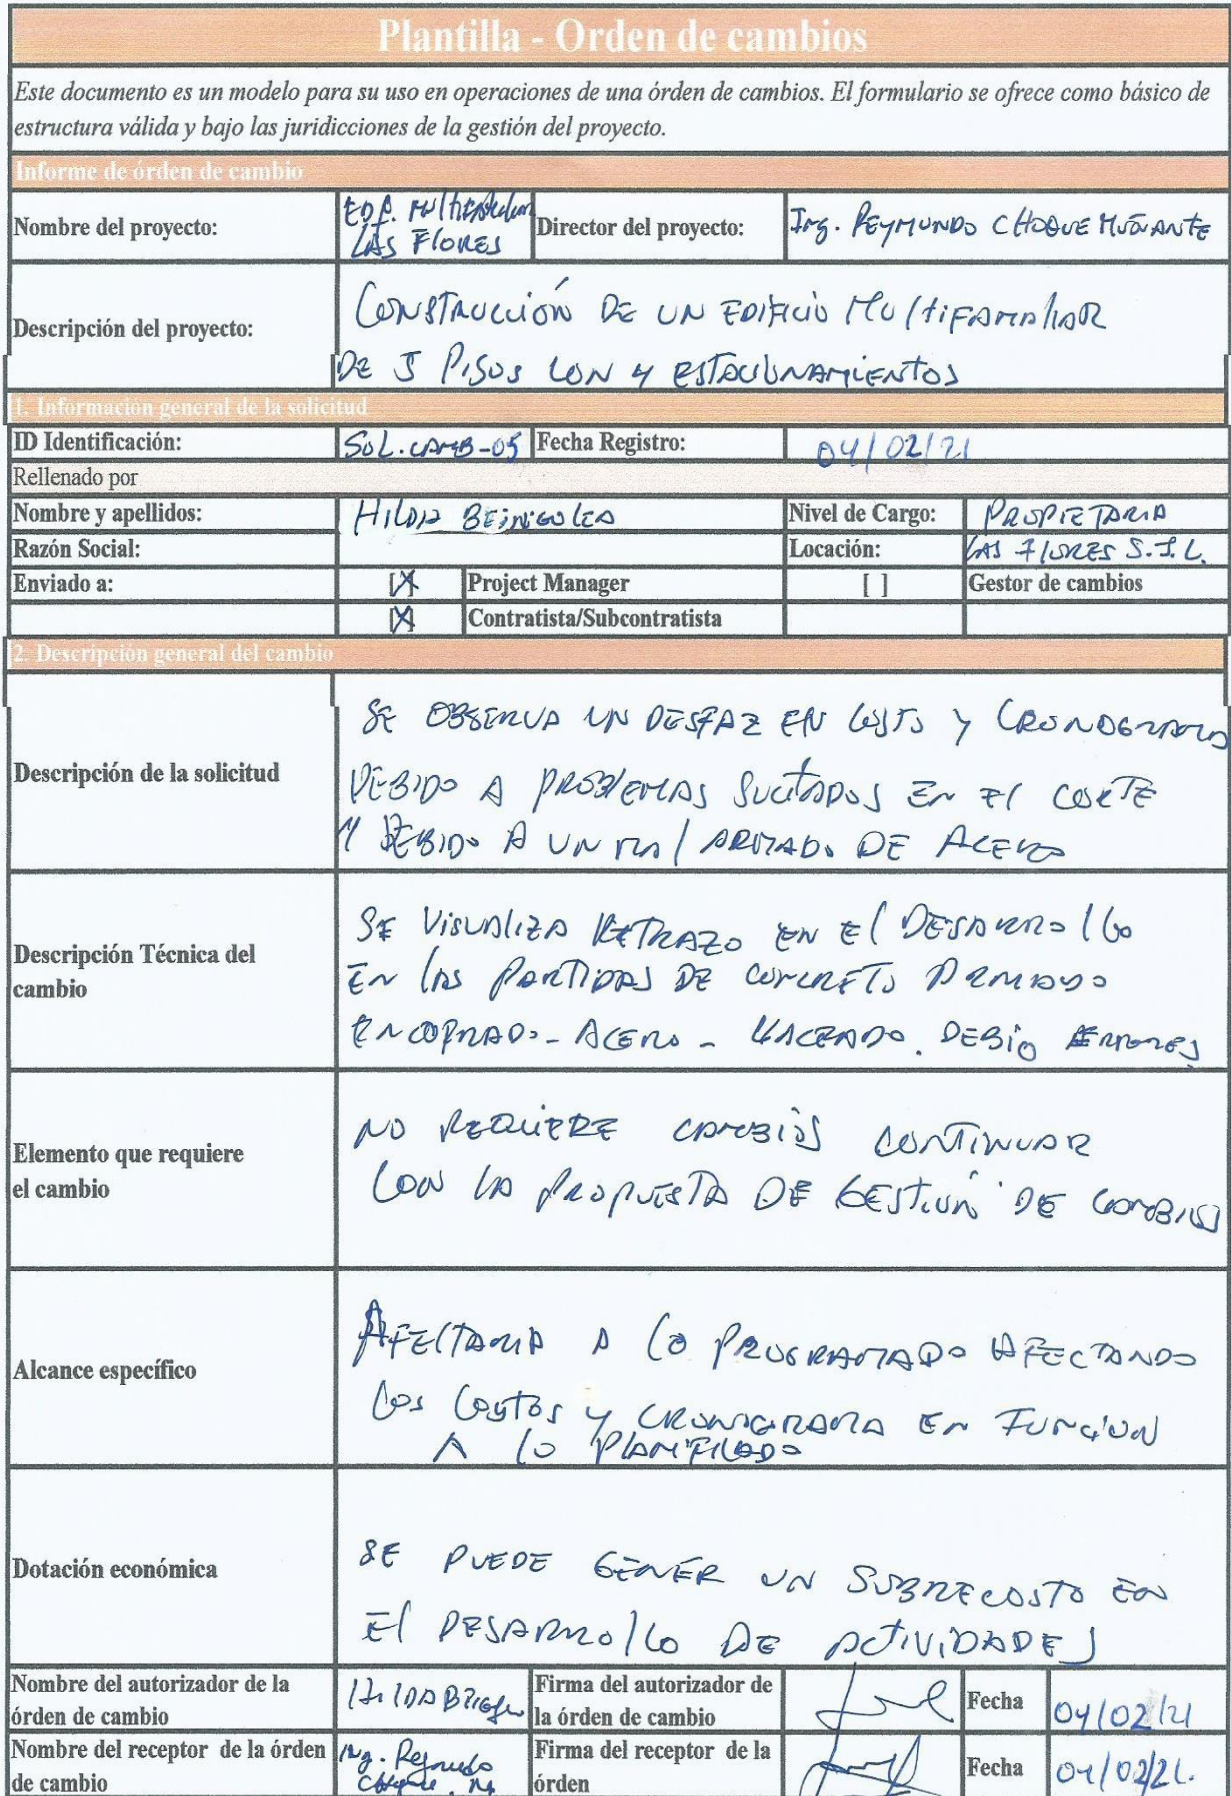 Plantilla - Orden de cambios
Este documento es un modelo para su uso en operaciones de una órden de cambios. El formulario se ofrece como básico de
estructura válida y bajo las juridicciones de la gestión del proyecto.
Informe de órden de cambio
Nombre del proyecto:
LAS FLORES
Director del proyecto:
Ing. REYMUNDO CHOQUE MUÑANTE
Descripción del proyecto:
CONSTRUCCIÓN DE UN EDIFICIO MULTIFAMILIAR
DE 5 PISOS CON 4 ESTACIONAMIENTOS
1. Información general de la solicitud
ID Identificación: SOL.CAMB-05 Fecha Registro: 04/02/21
Rellenado por
Nombre y apellidos: HILDA BEINGOLEA Nivel de Cargo: PROPIETARIA
Razón Social: Locación: LAS FLORES S.J.L.
Enviado a: [X] Project Manager [ ] Gestor de cambios
[X] Contratista/Subcontratista
2. Descripción general del cambio
Descripción de la solicitud
SE OBSERVA UN DESFAZ EN COSTO Y CRONOGRAMA
DEBIDO A PROBLEMAS SUCITADOS EN EL CORTE
Y DEBIDO A UN MAL ARMADO DE ACERO
Descripción Técnica del
cambio
SE VISUALIZA RETRAZO EN EL DESARROLLO
EN LAS PARTIDAS DE CONCRETO ARMADO
ENCOFRADO - ACERO - VACEADO. DEBIO ERRORES
Elemento que requiere
el cambio
NO REQUIERE CAMBIOS CONTINUAR
CON LA PROPUESTA DE GESTION DE CAMBIOS
Alcance específico
AFECTARIA A LO PROGRAMADO AFECTANDO
LOS COSTOS Y CRONOGRAMA EN FUNCION
A LO PLANIFICADO
Dotación económica
SE PUEDE GENER UN SOBRECOSTO EN
EL DESARROLLO DE ACTIVIDADES
Nombre del autorizador de la
órden de cambio
HILDA
Firma del autorizador de
la órden de cambio
Fecha 04/02/21
Nombre del receptor de la órden
de cambio
Ing. Reymundo
Choque
Firma del receptor de la
órden
Fecha 04/02/21.